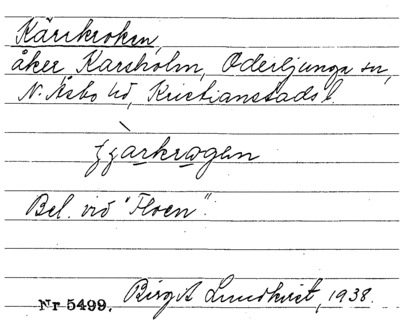 Kärrkroken,
åker, Karsholm, Oderljunga sn,
N. Åsbo hd, Kristianstads l.
Bel. vid "Floen".
Nr 5499. Birgit Lundkvist, 1938.